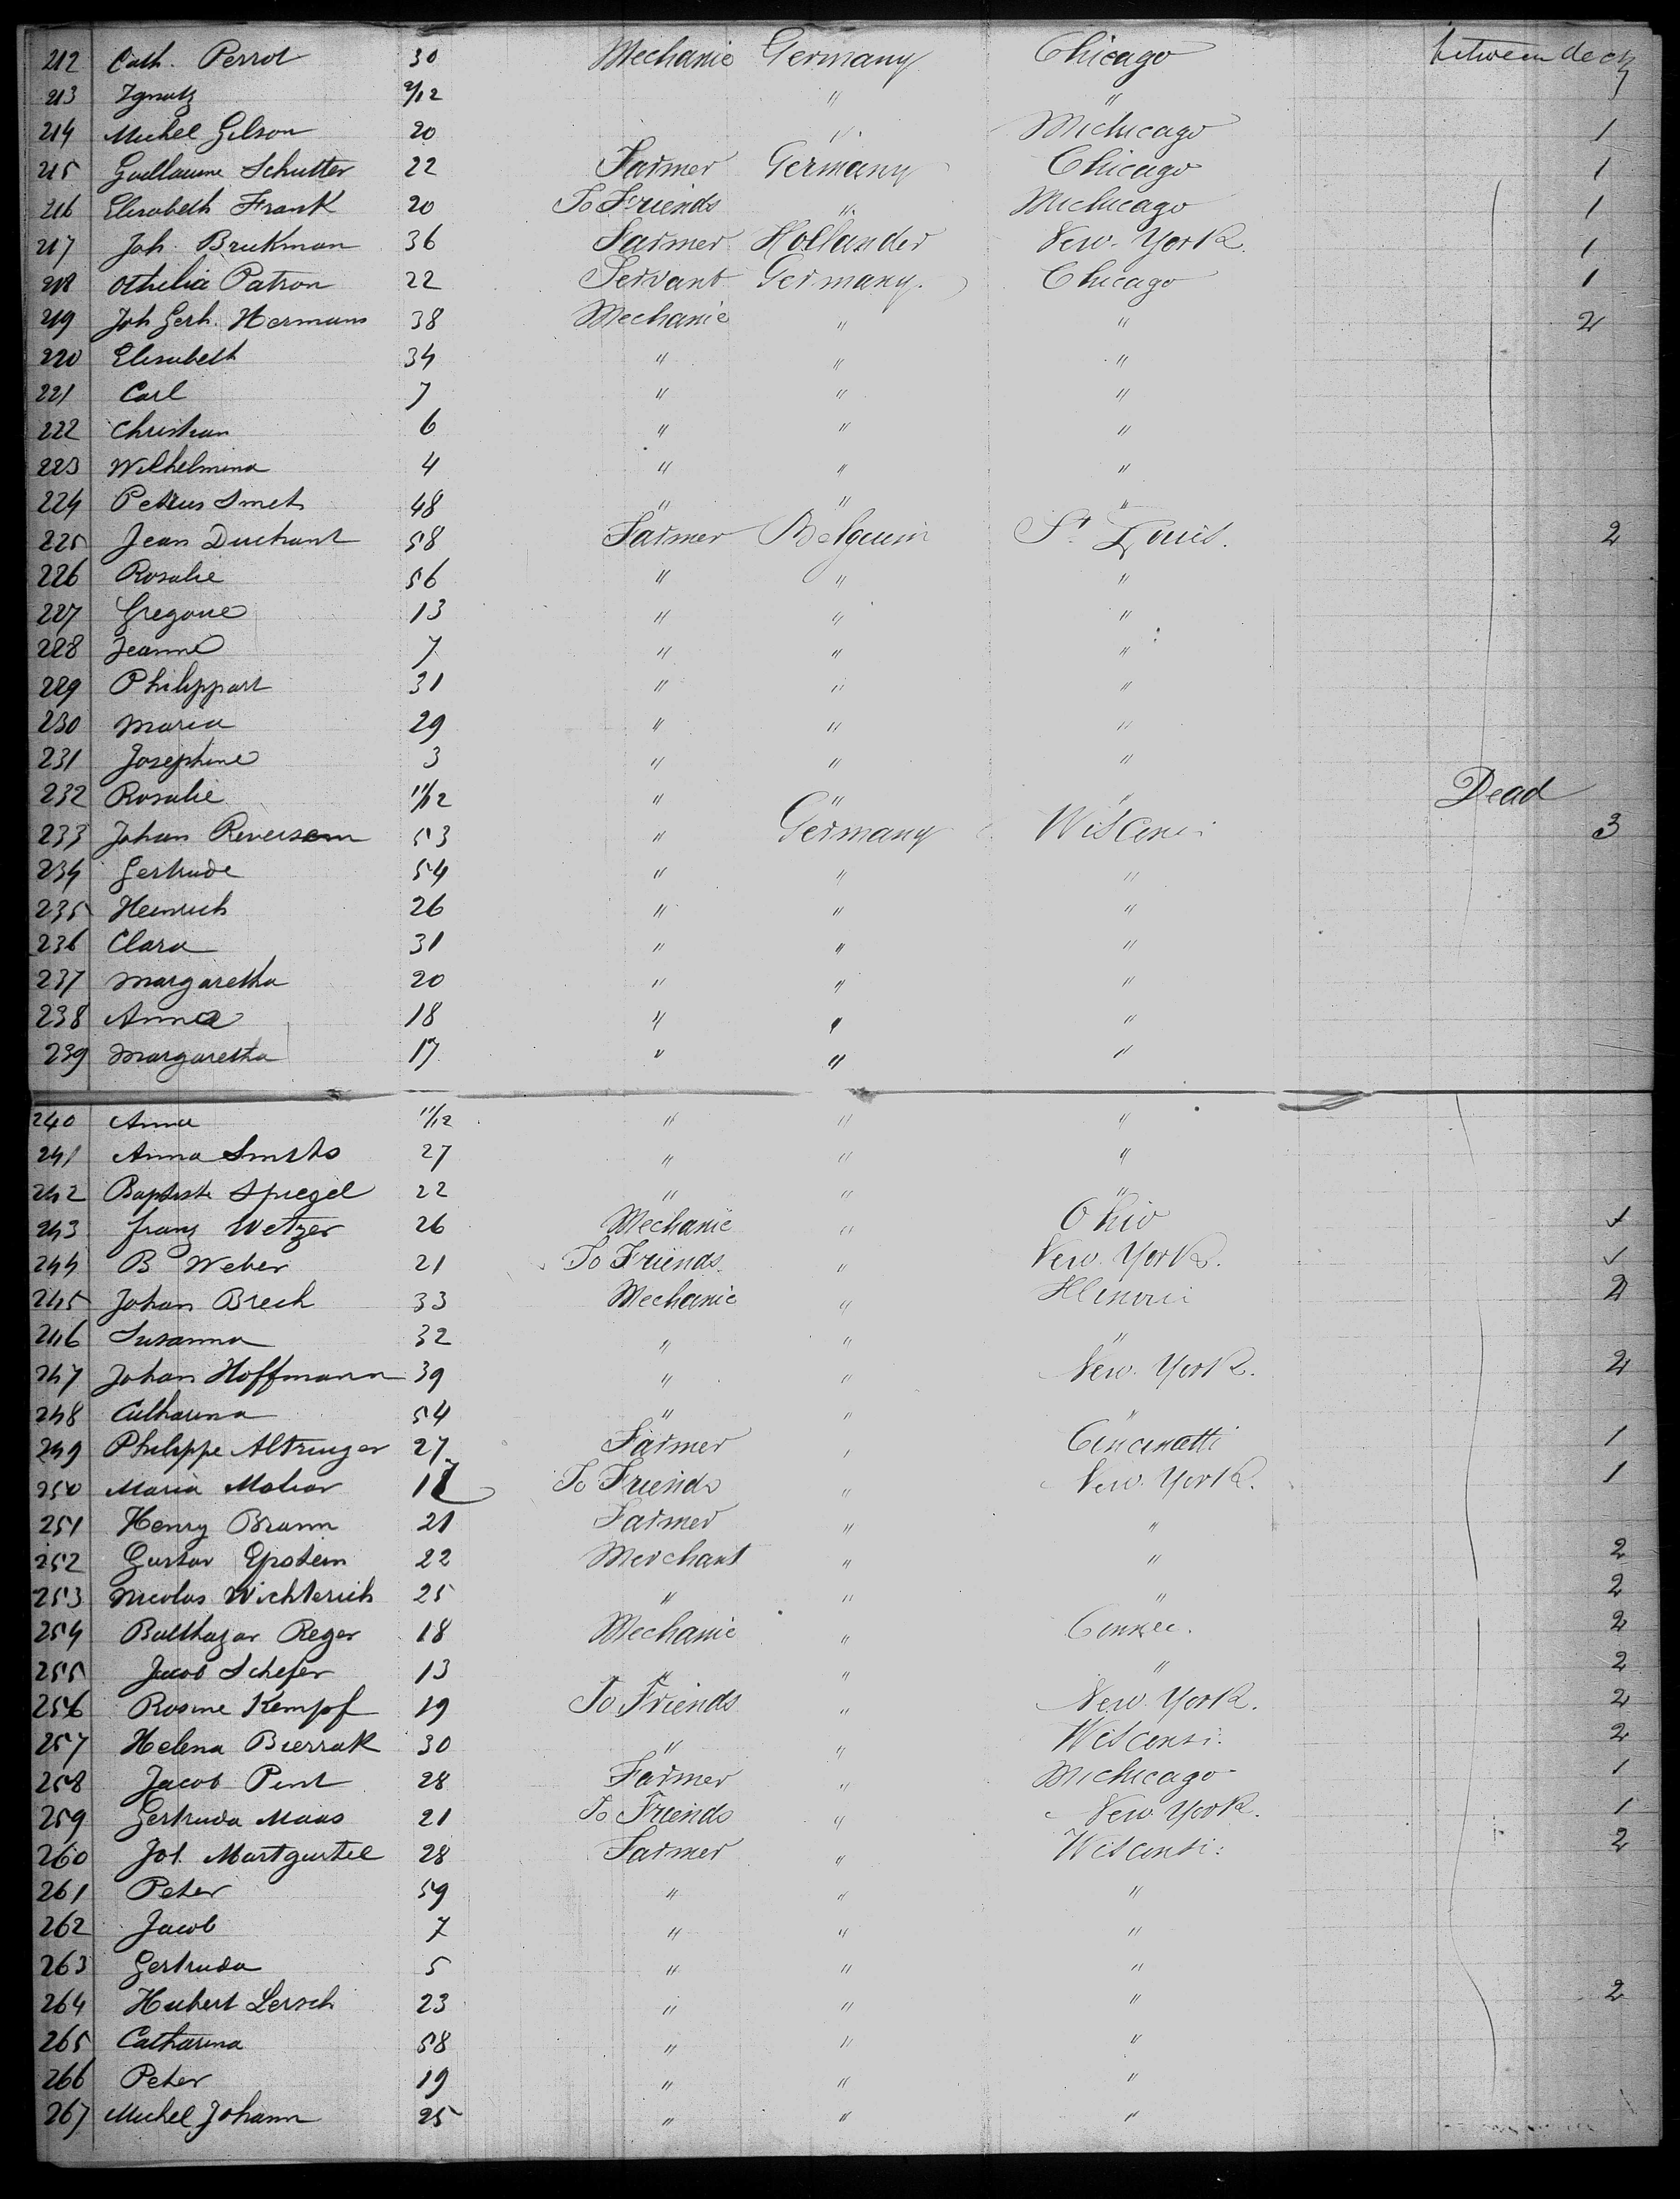 212 Cath. Perrot 30 Mechanic Germany Chicago between deck
213 Ignatz 9/12 " "
214 Michel Gilson 20 " Michicago 1
215 Guillaume Schutter 22 Farmer Germany Chicago 1
216 Elisabeth Frank 20 To Friends " Michicago 1
217 Joh. Brukman 36 Farmer Hollander New. York. 1
218 Othelia Patron 22 Servant Germany. Chicago 1
219 Joh Gerh. Hermans 38 Mechanic " " 2
220 Elisabeth 34 " " "
221 Carl 7 " " "
222 Christian 6 " " "
223 Wilhelmina 4 " " "
224 Petrus Smets 48 " " "
225 Jean Duchant 58 Farmer Belguim St. Louis. 2
226 Rosalie 56 " " "
227 Gregoire 13 " " "
228 Jeanne 7 " " "
229 Philippart 31 " " "
230 Maria 29 " " "
231 Josephine 3 " " "
232 Rosalie 11/12 " " " Dead
233 Johan Reversem 53 " Germany Wisconsi 3
234 Gertrude 54 " " "
235 Heinrich 26 " " "
236 Clara 31 " " "
237 Margaretha 20 " " "
238 Anna 18 " " "
239 Margaretha 17 " " "
240 Anna 11/12 " " "
241 Anna Smets 27 " " "
242 Baptiste Spiegel 22 " " "
243 Franz Wetzer 26 Mechanic " Ohio
244 B Weber 21 To Friends. " New. York.
245 Johan Brech 33 Mechanic " Illinoii 2
246 Susanna 32 " " "
247 Johan Hoffmann 39 " " New. York. 2
248 Catharina 54 " " "
249 Philippe Altringer 27 Farmer " Cincinatti 1
250 Maria 17 To Friends " New. York. 1
251 Henry Braun 21 Farmer " "
252 Gustav Epstein 22 Merchant " " 2
253 Nicolas Wichterich 25 " " " 2
254 Balthazar Reger 18 Mechanic " 2
255 Jacob Schefer 13 " " " 2
256 Rosine Kempf 19 To Friends " New. York. 2
257 Helena Bierrak 30 " " Wisconsi. 2
258 Jacob Pint 28 Farmer " Michicago 1
259 Gertruda Maas 21 To Friends " New. York. 1
260 Jos. Martgustel 28 Farmer " Wisconsi: 2
261 Peter 59 " " "
262 Jacob 7 " " "
263 Gertruda 5 " " "
264 Hubert Lersch 23 " " " 2
265 Catharina 58 " " "
266 Peter 19 " " "
267 Michel Johann 25 " " "